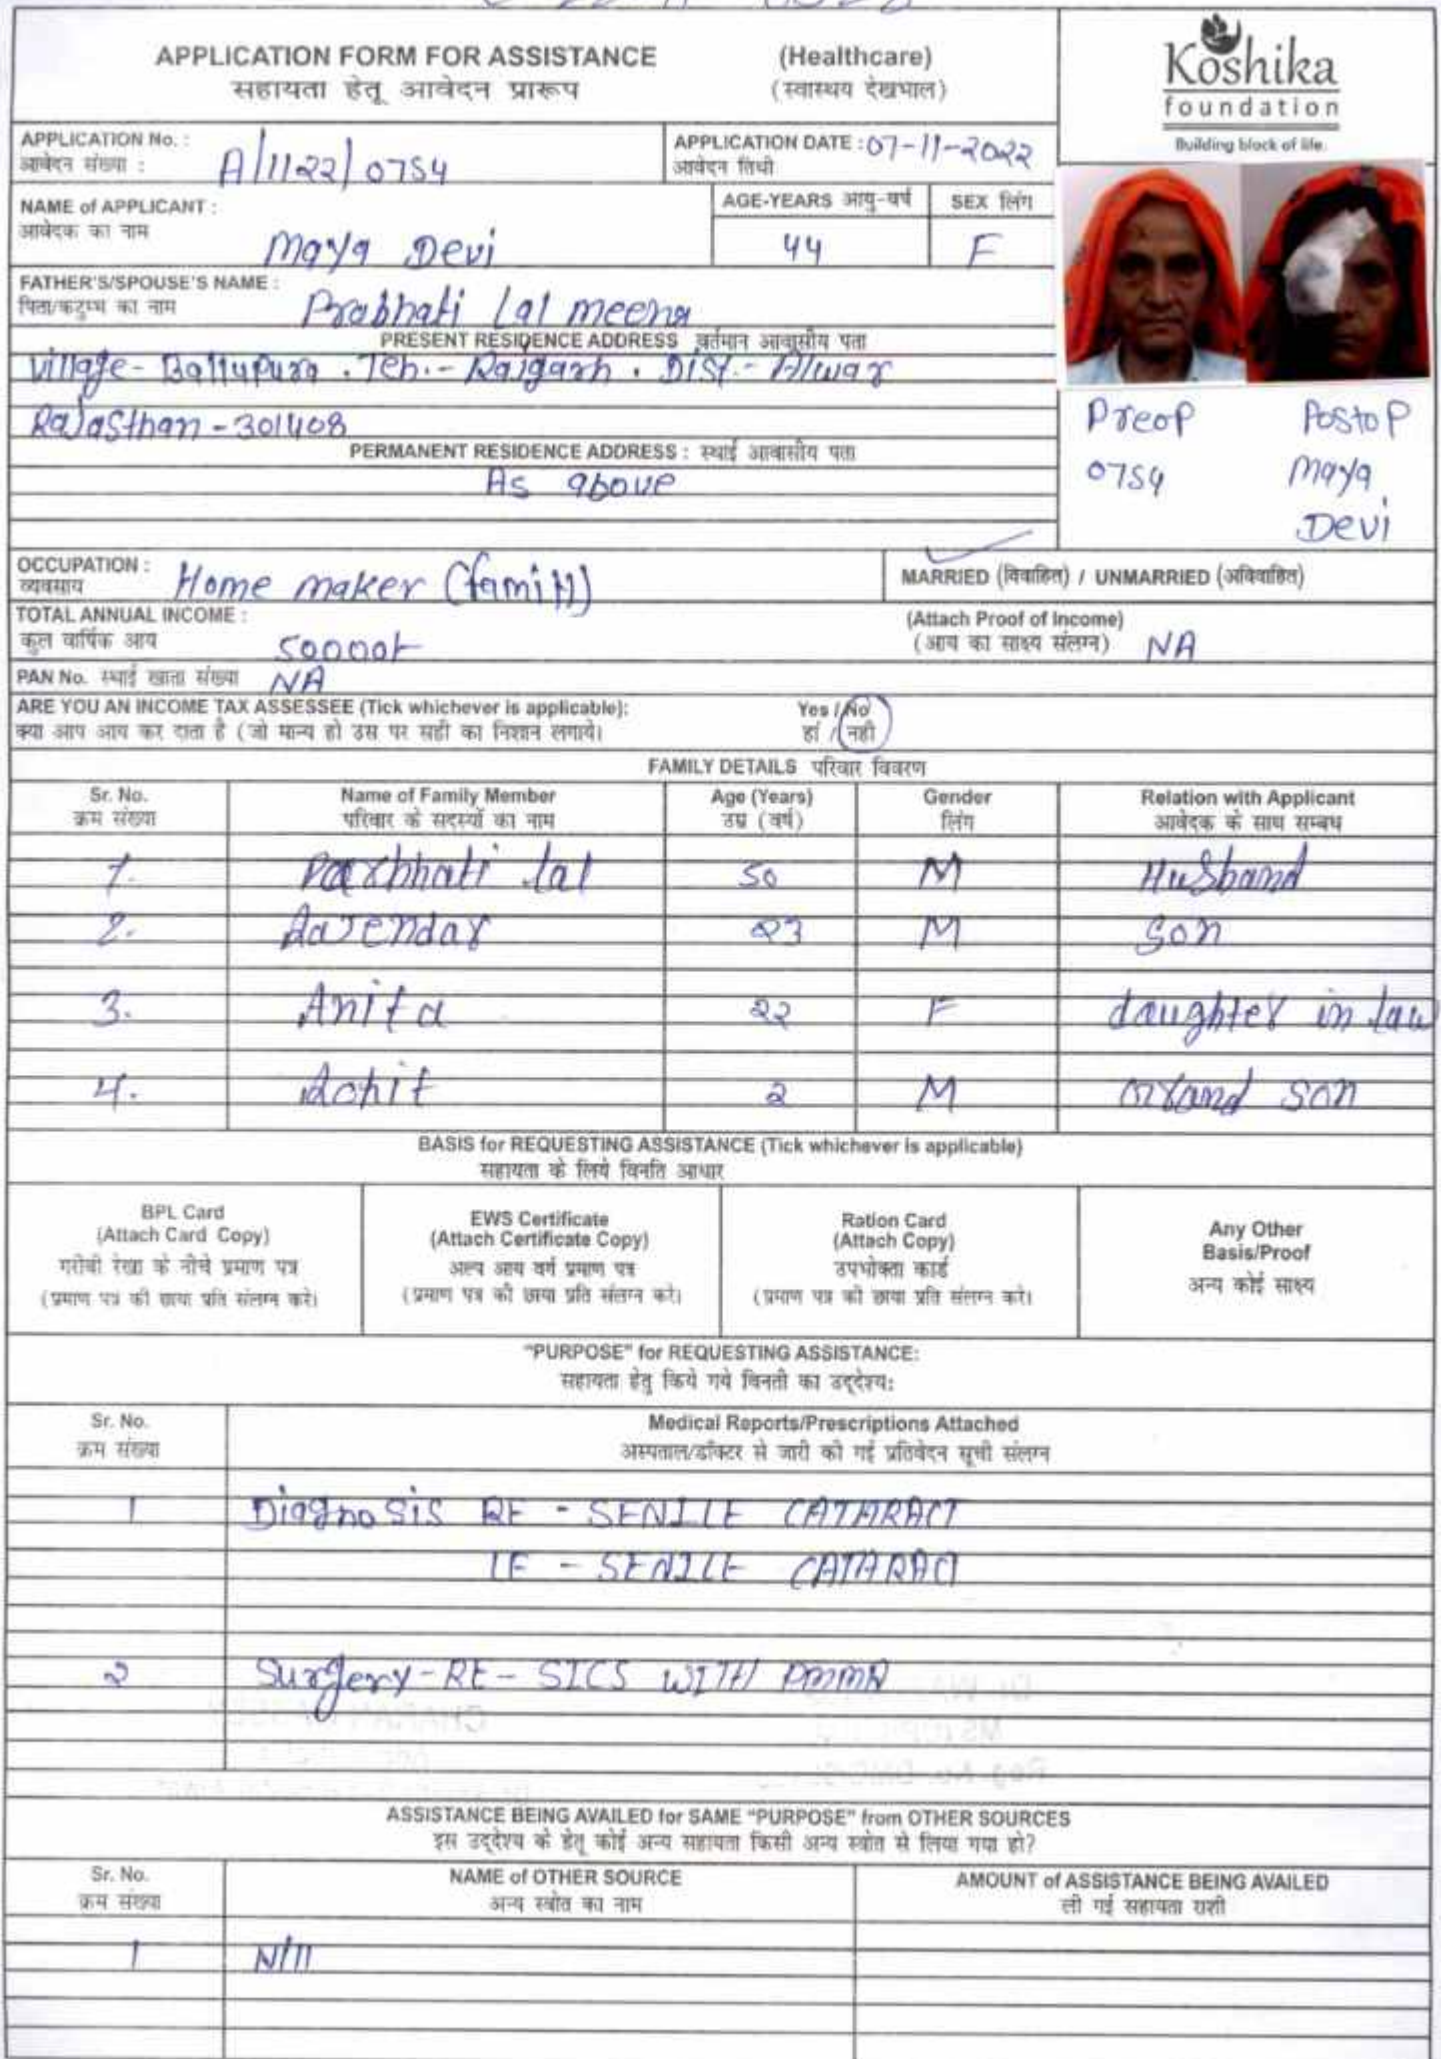 APPLICATION FORM FOR ASSISTANCE (Healthcare)
सहायता हेतू आवेदन प्रारूप (स्वास्थय देखभाल)
Koshika
foundation
Building block of life.
APPLICATION No. : A/1122/0754 APPLICATION DATE : 07-11-2022
आवेदन संख्या : आवेदन तिथी
NAME of APPLICANT : AGE-YEARS आयु-वर्ष SEX लिंग
आवेदक का नाम Maya Devi 44 F
FATHER'S/SPOUSE'S NAME :
पिता/कटुम्ब का नाम Prabhati Lal meena
PRESENT RESIDENCE ADDRESS वर्तमान आवासीय पता
Village- Ballupura . Teh.- Rajgarh . Dist.- Alwar
Rajasthan - 301408
Preop Postop
PERMANENT RESIDENCE ADDRESS : स्थाई आवासीय पता
As above
0754 Maya
Devi
OCCUPATION : Home maker (family) MARRIED (विवाहित) / UNMARRIED (अविवाहित)
व्यवसाय
TOTAL ANNUAL INCOME : (Attach Proof of Income)
कुल वार्षिक आय 50000/- (आय का साक्ष्य संलग्न) NA
PAN No. स्थाई खाता संख्या NA
ARE YOU AN INCOME TAX ASSESSEE (Tick whichever is applicable): Yes / No
क्या आप आय कर दाता है (जो मान्य हो उस पर सही का निशान लगाये। हां / नही
FAMILY DETAILS परिवार विवरण
Sr. No. Name of Family Member Age (Years) Gender Relation with Applicant
क्रम संख्या परिवार के सदस्यों का नाम उम्र (वर्ष) लिंग आवेदक के साथ सम्बध
1. Parbhati lal 50 M Husband
2. 23 M Son
3. Anita 22 F daughter in law
4. Rohit 2 M Grand son
BASIS for REQUESTING ASSISTANCE (Tick whichever is applicable)
सहायता के लिये विनति आधार
BPL Card
(Attach Card Copy)
गरीबी रेखा के नीचे प्रमाण पत्र
(प्रमाण पत्र की छाया प्रति संलग्न करे।
EWS Certificate
(Attach Certificate Copy)
अल्प आय वर्ग प्रमाण पत्र
(प्रमाण पत्र की छाया प्रति संलग्न करे।
Ration Card
(Attach Copy)
उपभोक्ता कार्ड
(प्रमाण पत्र की छाया प्रति संलग्न करे।
Any Other
Basis/Proof
अन्य कोई साक्ष्य
"PURPOSE" for REQUESTING ASSISTANCE:
सहायता हेतु किये गये विनती का उद्देश्य:
Sr. No. Medical Reports/Prescriptions Attached
क्रम संख्या अस्पताल/डॉक्टर से जारी की गई प्रतिवेदन सूची संलग्न
1 Diagnosis RE - SENILE CATARACT
LE - SENILE CATARACT
2 Surgery - RE - SICS WITH PMMA
ASSISTANCE BEING AVAILED for SAME "PURPOSE" from OTHER SOURCES
इस उद्देश्य के हेतू कोई अन्य सहायता किसी अन्य स्त्रोत से लिया गया हो?
Sr. No. NAME of OTHER SOURCE AMOUNT of ASSISTANCE BEING AVAILED
क्रम संख्या अन्य स्त्रोत का नाम ली गई सहायता राशी
1 Nill